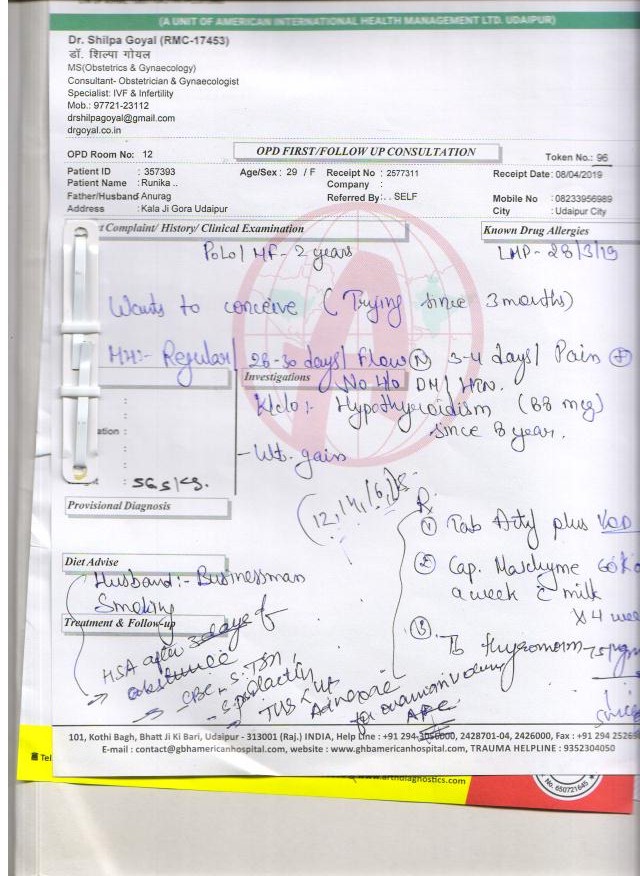 (A UNIT OF AMERICAN INTERNATIONAL HEALTH MANAGEMENT LTD. UDAIPUR)
Dr. Shilpa Goyal (RMC-17453)
डॉ. शिल्पा गोयल
MS(Obstetrics & Gynaecology)
Consultant- Obstetrician & Gynaecologist
Specialist: IVF & Infertility
Mob.: 97721-23112
drshilpagoyal@gmail.com
drgoyal.co.in
OPD Room No: 12 OPD FIRST/FOLLOW UP CONSULTATION Token No.: 96
Patient ID : 357393 Age/Sex : 29 / F Receipt No : 2577311 Receipt Date : 08/04/2019
Patient Name : Runika .. Company :
Father/Husband Anurag Referred By: . . SELF Mobile No : 08233956989
Address : Kala Ji Gora Udaipur City : Udaipur City
t Complaint/ History/ Clinical Examination Known Drug Allergies
PoLo / MF - 2 years LMP - 28/3/19
Wants to conceive (Trying since 3 months)
MH:- Regular / 28-30 days / Flow N 3-4 days / Pain +
Investigations
No H/o DM / HTN.
K/c/o :- Hypothyroidism (88 mcg)
ation : since 8 year.
- Wt. gain
: 56.5 kg.
Provisional Diagnosis
(12, 14, 16, 18
Rx
① Tab Acty plus
② Cap. 60K
Diet Advise
a week c milk
Husband :- Businessman
x 4 wee
Smoking
Treatment & Follow-up
③ Tb
HSA after 3 days of
→ CBC, S. TSH,
→ S. prolactin
→ TVS
101, Kothi Bagh, Bhatt Ji Ki Bari, Udaipur - 313001 (Raj.) INDIA, Help Line : +91 294-3056000, 2428701-04, 2426000, Fax : +91 294 25269
E-mail : contact@gbhamericanhospital.com, website : www.gbhamericanhospital.com, TRAUMA HELPLINE : 9352304050
Tel
www.arthdiagnostics.com
No. 650721645